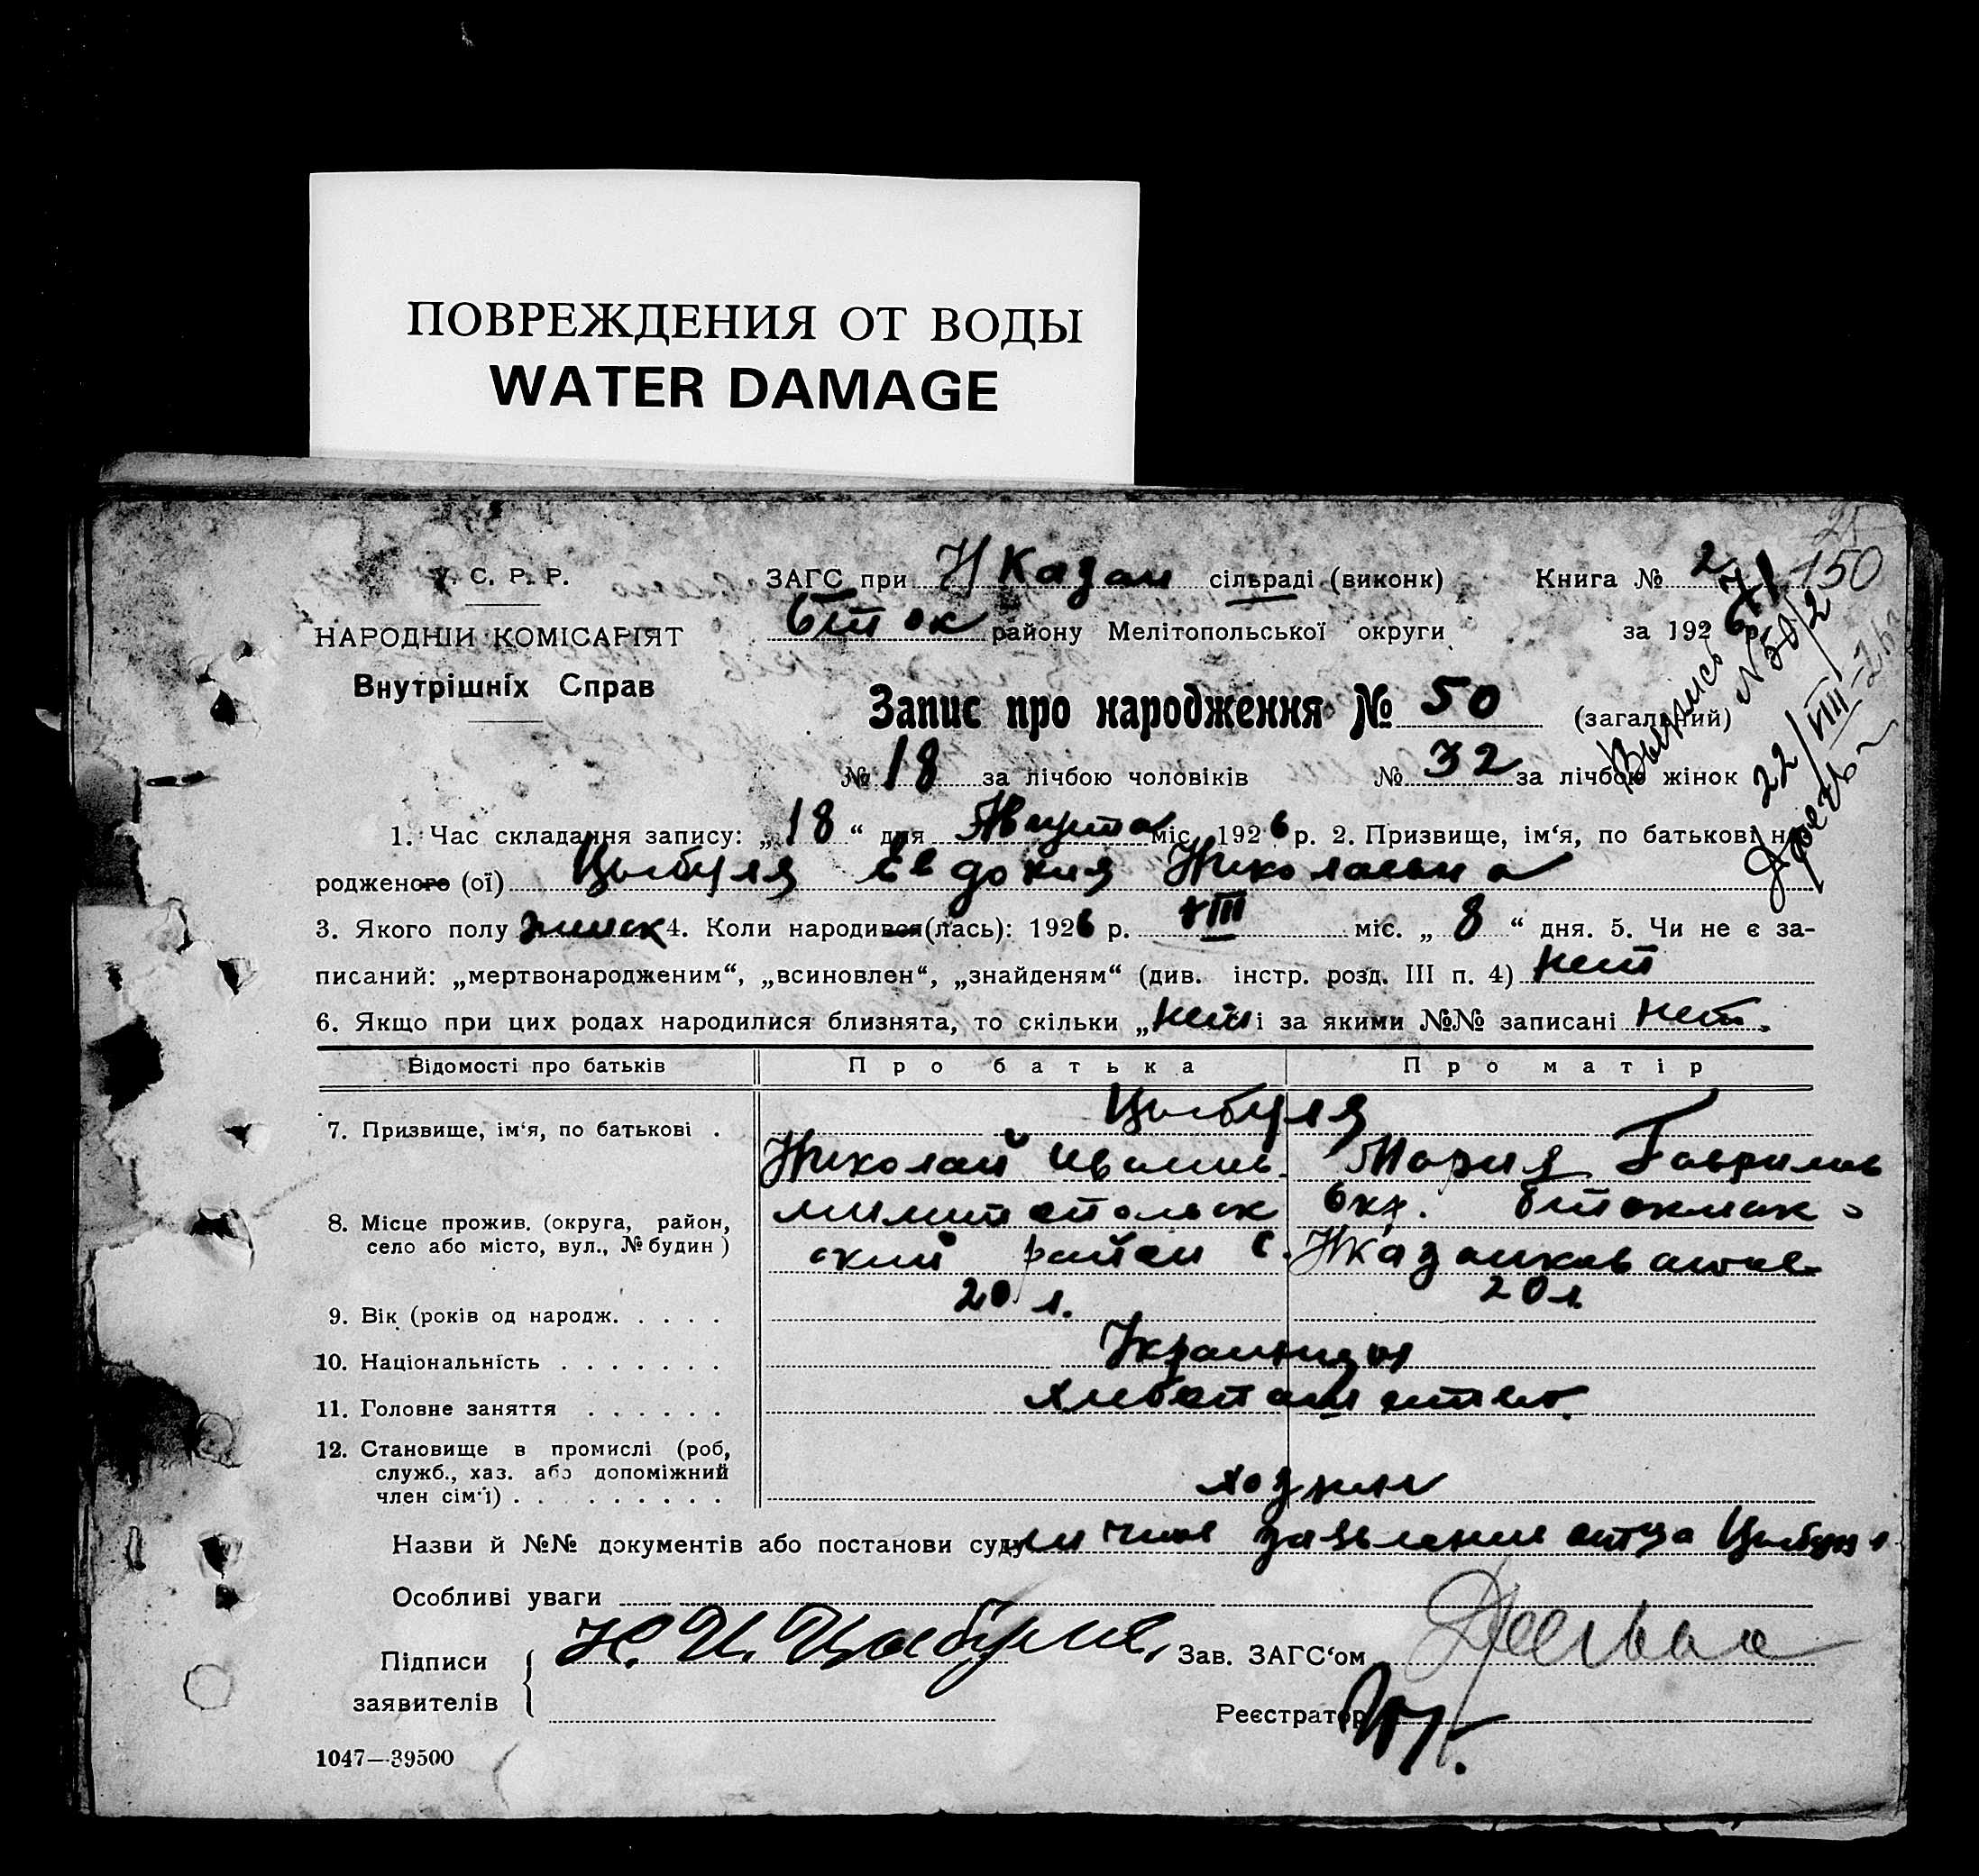 ПОВРЕЖДЕНИЯ ОТ ВОДЫ
WATER DAMAGE
У. С. Р. Р.
НАРОДНІЙ КОМІСАРІЯТ
Внутрішніх Справ
ЗАГС при Н Казан сільраді (виконк)
бток району Мелітопольської округи
Книга № 2
150
за 1926 р.
Запис про народження № 50 (загальний)
№ 18 за лічбою чоловіків № 32 за лічбою жінок
Выпись
№ 50/2
22/VIII-26
1. Час складання запису: „18“ дня Августа міс. 1926 р. 2. Призвище, ім‘я, по батькові на-
родженого (ої) Цыбуля Евдокия Николаевна
3. Якого полу женск 4. Коли народився(лась): 1926 р. VIII міс. „8“ дня. 5. Чи не є за-
писаний: „мертвонародженим“, „всиновлен“, „знайденям“ (див. інстр. розд. III п. 4) нет
6. Якщо при цих родах народилися близнята, то скільки „нет і за якими №№ записані нет.
Відомості про батьків Про батька Про матір
7. Призвище, ім‘я, по батькові . Цыбуля
Николай Иванов. Мария Гаврилов
8. Місце прожив. (округа, район,
село або місто, вул., № будин)
мелитопольск окр. бтокмак-
ский район с.
9. Вік (років од народж. . . . . 20 л. 20 л.
10. Національність . . . . . . . Украинцы
11. Головне заняття . . . . . . хлебопашество.
12. Становище в промислі (роб,
служб., хаз. або допоміжний
член сім‘ї) . . . . . . . . . хозяин
Назви й №№ документів або постанови суду личное заявление отца Цыбуля
Особливі уваги
Підписи
заявителів
Н. И. Цыбуля, Зав. ЗАГС‘ом
Реєстратор
1047—39500